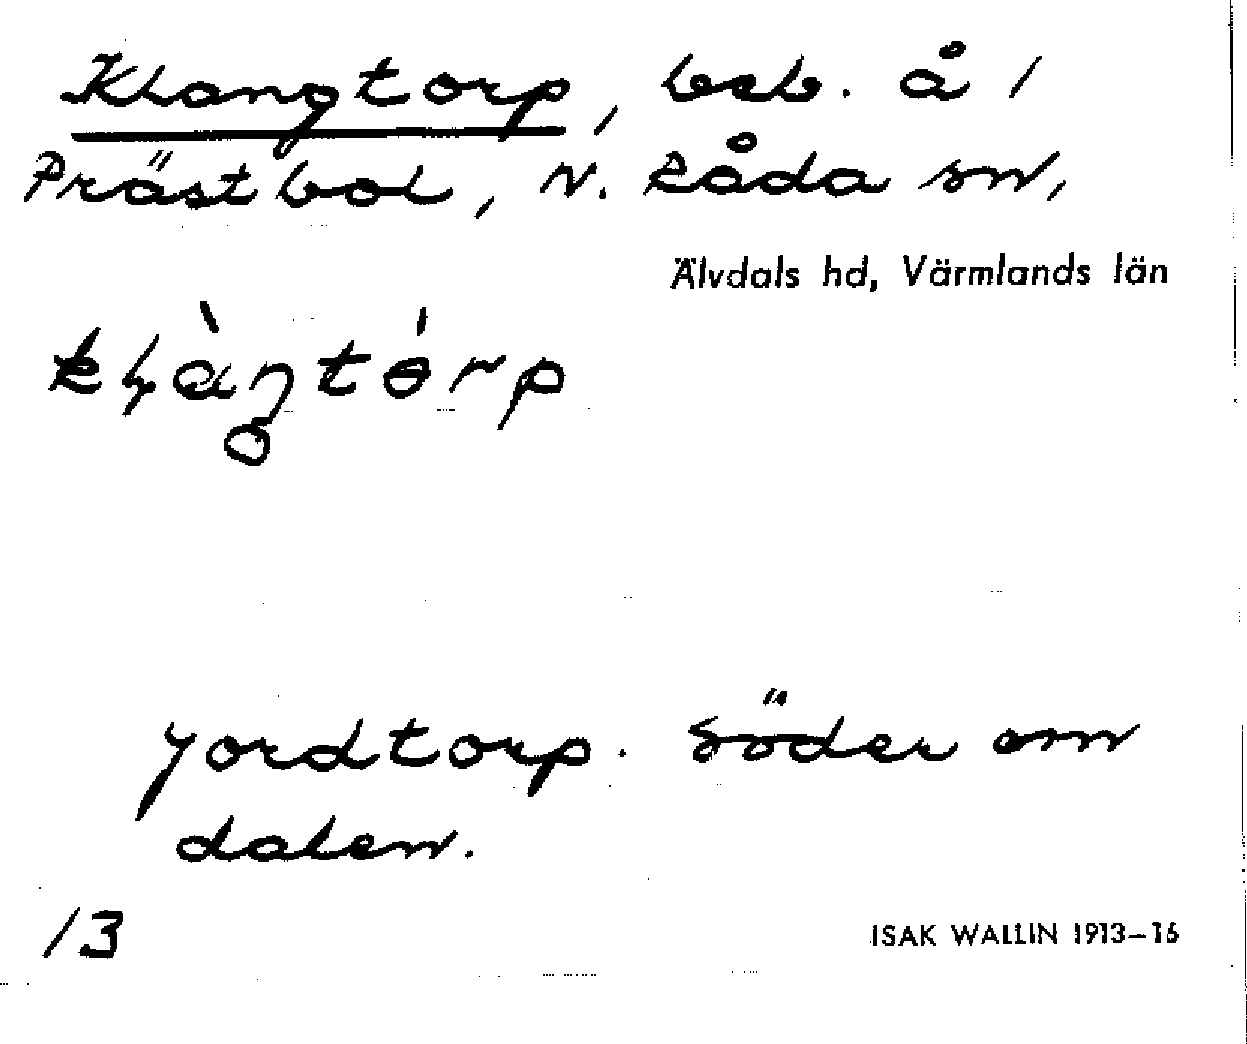 Klangtorp, beb. å 1
Prästbol, N. Råda sn,
Älvdals hd, Värmlands län
jordtorp. Söder om
dalen.
13
ISAK WALLIN 1913–16